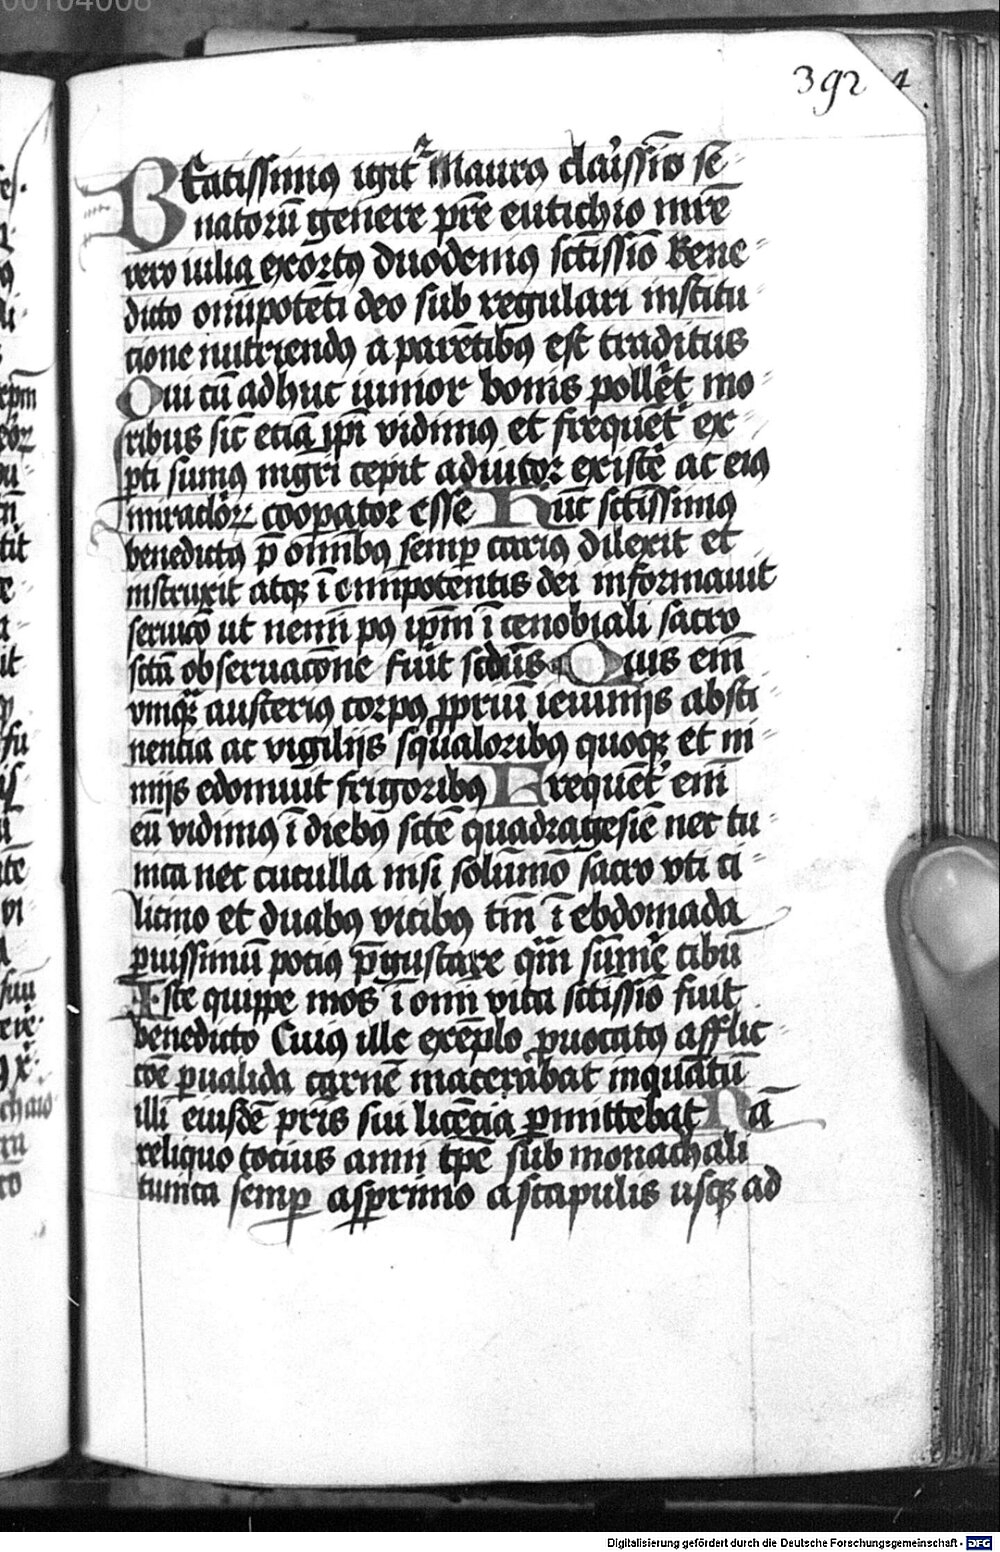 00104008
392 4
BEatissimꝯ igit᷑ Maurꝯ claͥssīo se-
natorū genere pr̄e euticħio mr̄e
vero iulia exortꝯ duodenīꝯ sc̄tissīo Bene-
dicto om̄ipotēti deo sub regulari institu-
cione nutriendꝯ a parētibꝯ est traditus
Qui cū adhuc iunior bonis pollet᷑ mo-
ribus sic̄ etiā ip̄i vidimꝯ et frequēt᷑ ex-
pti sumꝯ mgr̄i cepit adiutor existe᷑ ac eiꝯ
miraclorꝝ coopator esse Hūc sc̄tissimꝯ
benedictꝯ p̄ om̄ibꝯ semp cariꝯ dilexit et
instruxit atqꝫ ī om̄ipotentis dei informauit
seruicō ut nemīnī pꝯ ip̄m ī cenobiali sacro
sc̄tā obseruacōne fuit scd̄us Quis em̄
vmqꝫ austeriꝯ corpꝯ ꝓpriū ieiunijs absti-
nentia ac vigilijs squaloribꝯ quoqꝫ et ni-
mijs edomuit frigoribꝯ Frequēt᷑ em̄
eū vidimꝯ ī diebꝯ sc̄te quadragesīe nec tu-
nica nec cuculla nisi solūmō sacro vti ci-
licino et duabꝯ vicibꝯ tm̄ ī ebdomada
puissimū potiꝯ p̄gustare qm̄ sume᷑ cibū
Iste quippe mos ī om̄i vita sc̄tissīo fuit
benedicto Cuiꝯ ille exēplo ꝓuocatꝯ afflic-
cōe ꝑualida carnē macerabat inquātū
illi eiusdē pr̄is sui licētia ꝑmittebat Nā
reliquo tocius anni tꝑe sub monachali
tunica semꝑ asꝑrimo a scapulis usqꝫ ad
Digitalisierung gefördert durch die Deutsche Forschungsgemeinschaft - DFG